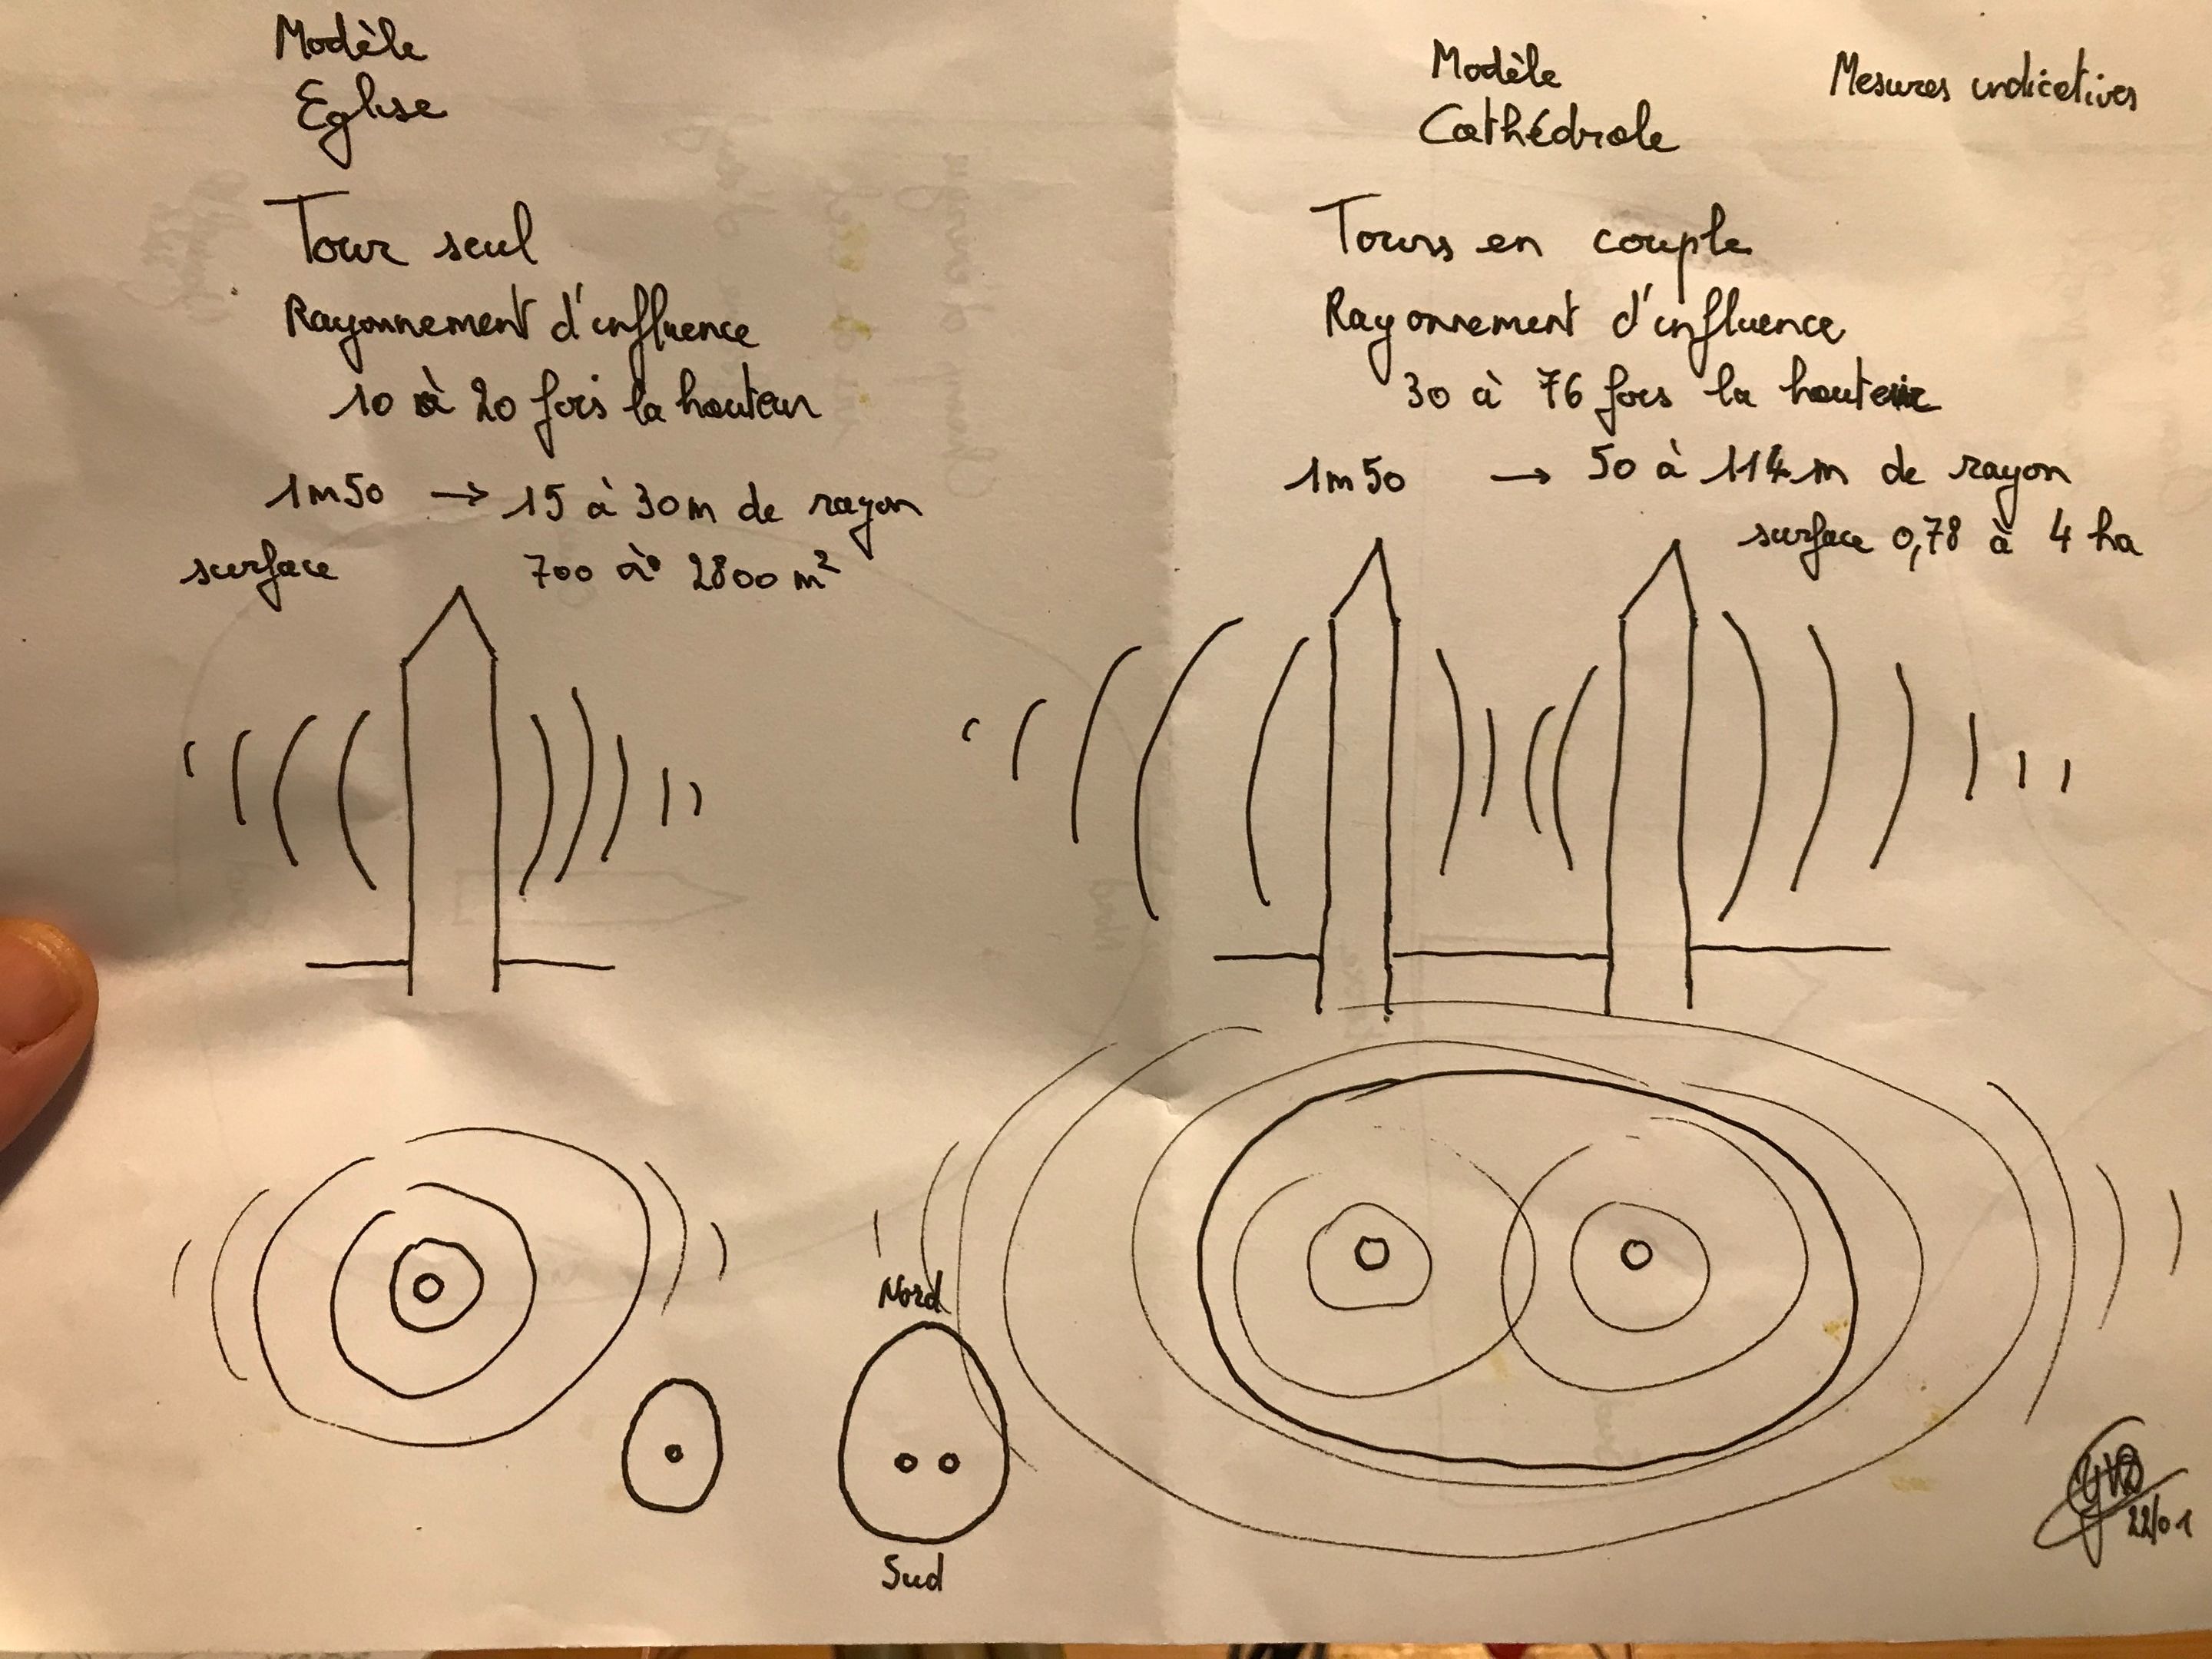 Modèle
Eglise
Tour seul
Rayonnement d'influence
10 à 20 fois la hauteur
1m50 → 15 à 30m de rayon
surface 700 à 2800 m²
Modèle
Cathédrale
Mesures indicatives
Tours en couple
Rayonnement d'influence
30 à 76 fois la hauteur
1m50 → 50 à 114 m de rayon
surface 0,78 à 4 ha
Nord
Sud
22/01